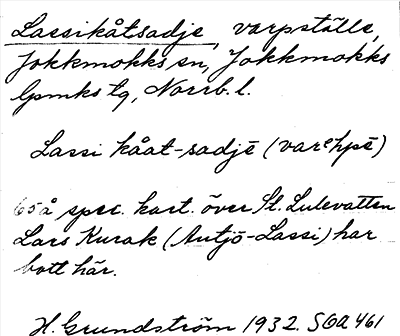 Lassikåtsadje, varpställe,
Jokkmokks sn, Jokkmokks
lpmks tg, Norrb. l.
Lassi kåat-sadjē (varᵉhpē)
65å spec. kart. över St. Lulevatten
Lars Kurak (Autjō-Lassi) har
bott här.
H. Grundström 1932. SOA 461